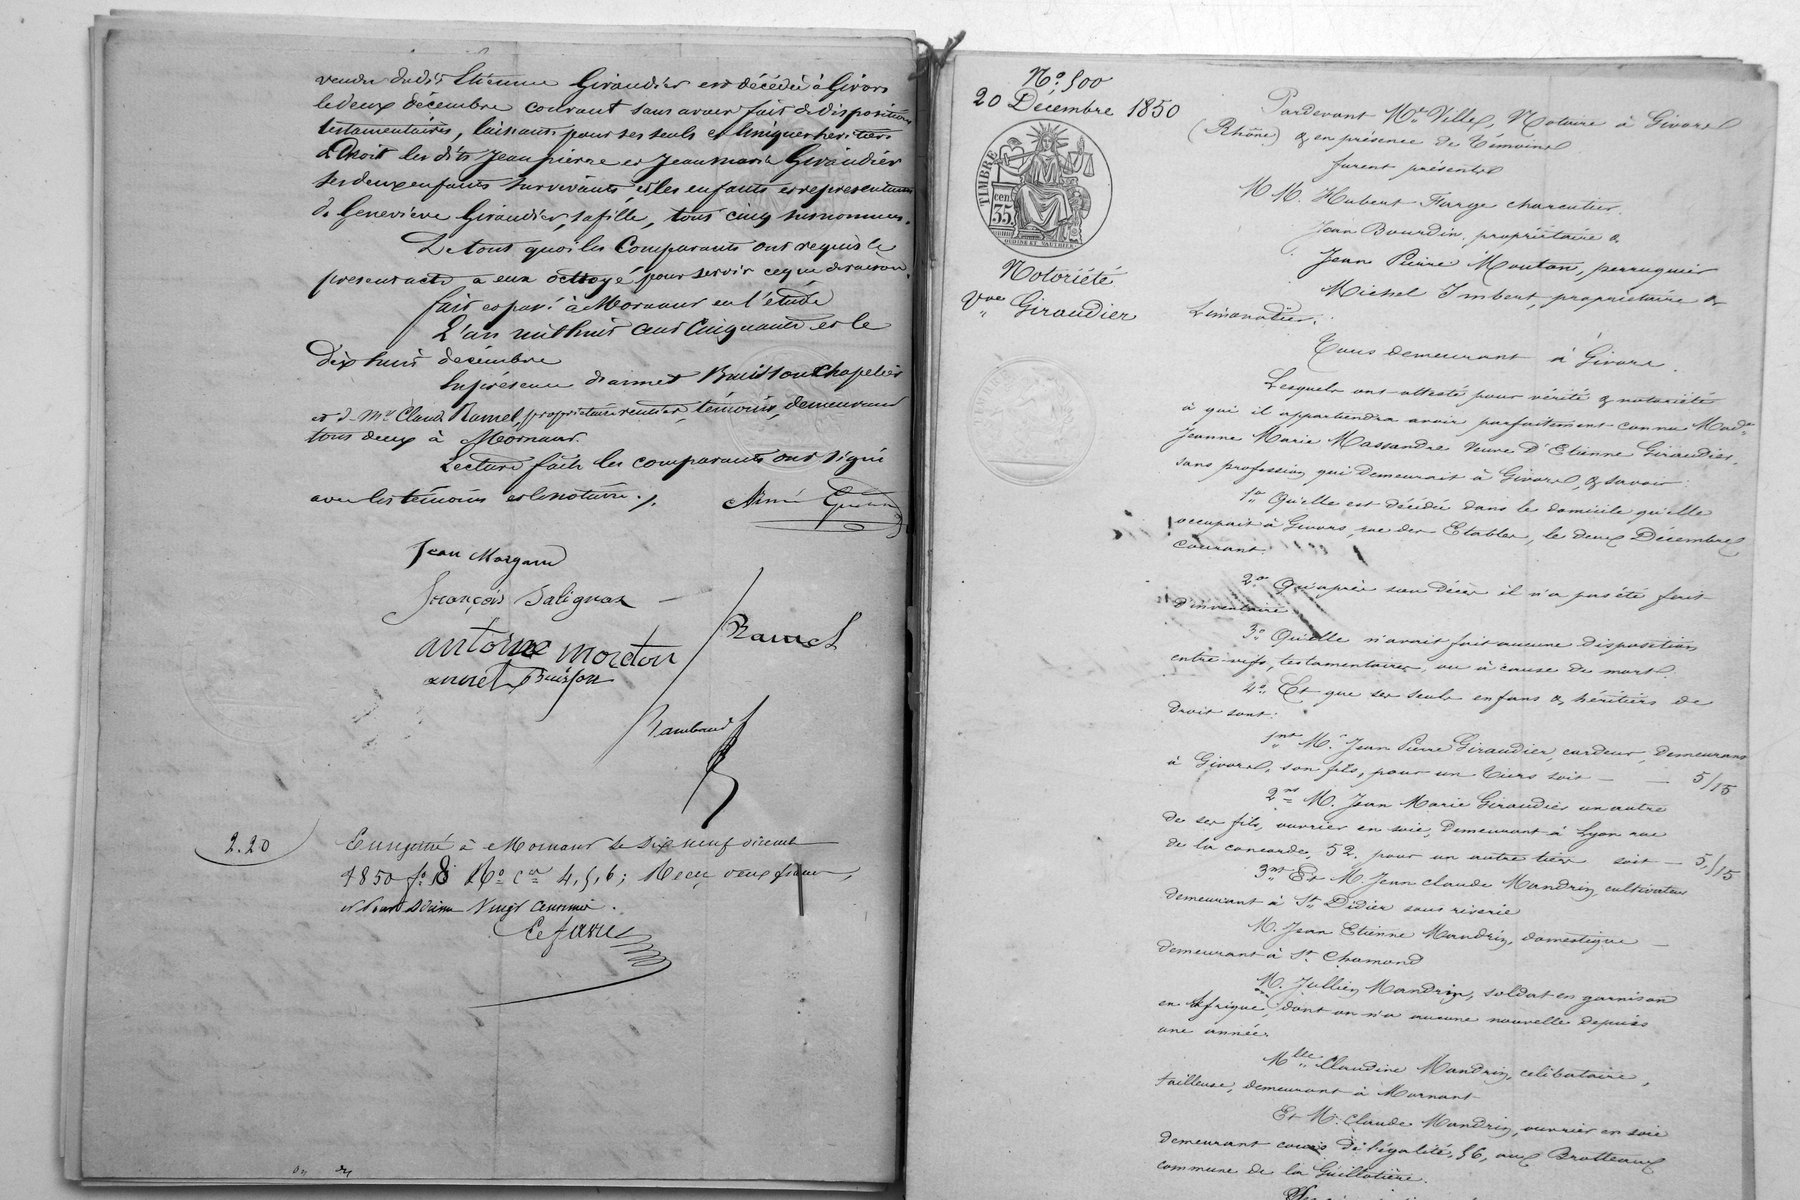 veuve dudit Etienne Giraudier est décédée à Givors
le deux décembre courant sans avoir fait de dispositions
testamentaires, laissant pour ses seuls et uniques héritiers
de droit les dits Jean pierre et Jean marie Giraudier
ses deux enfants survivants, et les enfants
de Geneviève Giraudier, sa fille, tous cinq susnommés.
De tout quoi les Comparants ont requis le
présent acte a eux octroyé pour servir ce que de raison.
fait et passé à Mornant en l'étude
L'an mil huit cent cinquante et le
Dix huit décembre
En présence d'annet Buisson Chapelier
et d. Mr. Claude Ramel, propriétaire rentier, témoins, demeurant
tous deux à Mornant.
Lecture faite les comparants ont signé
avec les témoins et le notaire ./.
Aimé
Jean
François Salignat
antoine moreton
Ramel
annet Buisson
Rambaud
2.20
Enregistré à Mornant le Dix neuf décembre
1850 fo. 18 Ro. cer 4, 5, 6; Reçu deux francs,
et pour Décime Vingt centimes.
Lefavre
No. 500
20 Decembre 1850
TIMBRE
cen
35
OUDINÉ ET VAUTHIER
Notoriété
Vve Giraudier
Pardevant Me. Ville, Notaire à Givors
(Rhône) & en présence de témoins
furent présents
M M. Hubert Farge charcutier.
Jean Bourdin, propriétaire &
Jean Pierre Mouton, perruquier
Michel Imbert, propriétaire &
Limonadier.
Tous demeurant à Givors.
Lesquels ont attesté pour vérité & notoriété
à qui il appartiendra avoir parfaitement connu Made.
Jeanne Marie Massandre Veuve D'Etienne Giraudier,
sans profession, qui demeurait à Givors, & savoir:
1o. Qu'elle est décédée dans le domicile qu'elle
occupait à Givors, rue des Etables, le deux Décembre
courant.
2o. Qu'après son Décès il n'a pas été fait
D'inventaire.
3o. Qu'elle n'avait fait aucune disposition
entre-vifs, testamentaires, ou à cause de mort.
4o. Et que ses seuls enfans & héritiers de
droit sont:
1ent M. Jean Pierre Giraudier, cardeur, Demeurant
à Givors, son fils, pour un tiers soit — — 5/15
2nt M. Jean Marie Giraudier un autre
de ses fils, ouvrier en soie, Demeurant à Lyon rue
de la concorde, 52. pour un autre tiers soit — 5/15
3nt Et M. Jean Claude Mandrin, cultivateur
demeurant à St. Didier sous riverie
M. Jean Etienne Mandrin, domestique —
demeurant à St. Chamond
M. Jullien Mandrin, soldat en garnison
en Afrique, dont on n'a aucune nouvelle depuis
une année.
Mlle. Claudine Mandrin, célibataire,
tailleuse, demeurant à Mornant
Et M. Claude Mandrin, ouvrier en soie
demeurant cours De l'égalité, 56, aux Brotteaux
commune de la Guillotière.